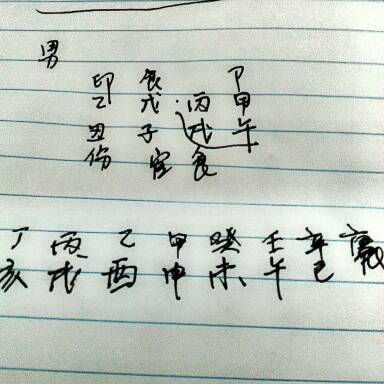 男
印 食
乙 戊 丙 甲
丑 子 戌 午
伤 官 食
丁 丙 乙 甲 癸 壬 辛
亥 戌 酉 申 未 午 巳